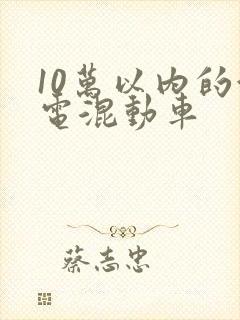 10萬以内的
電混動車
蔡志忠